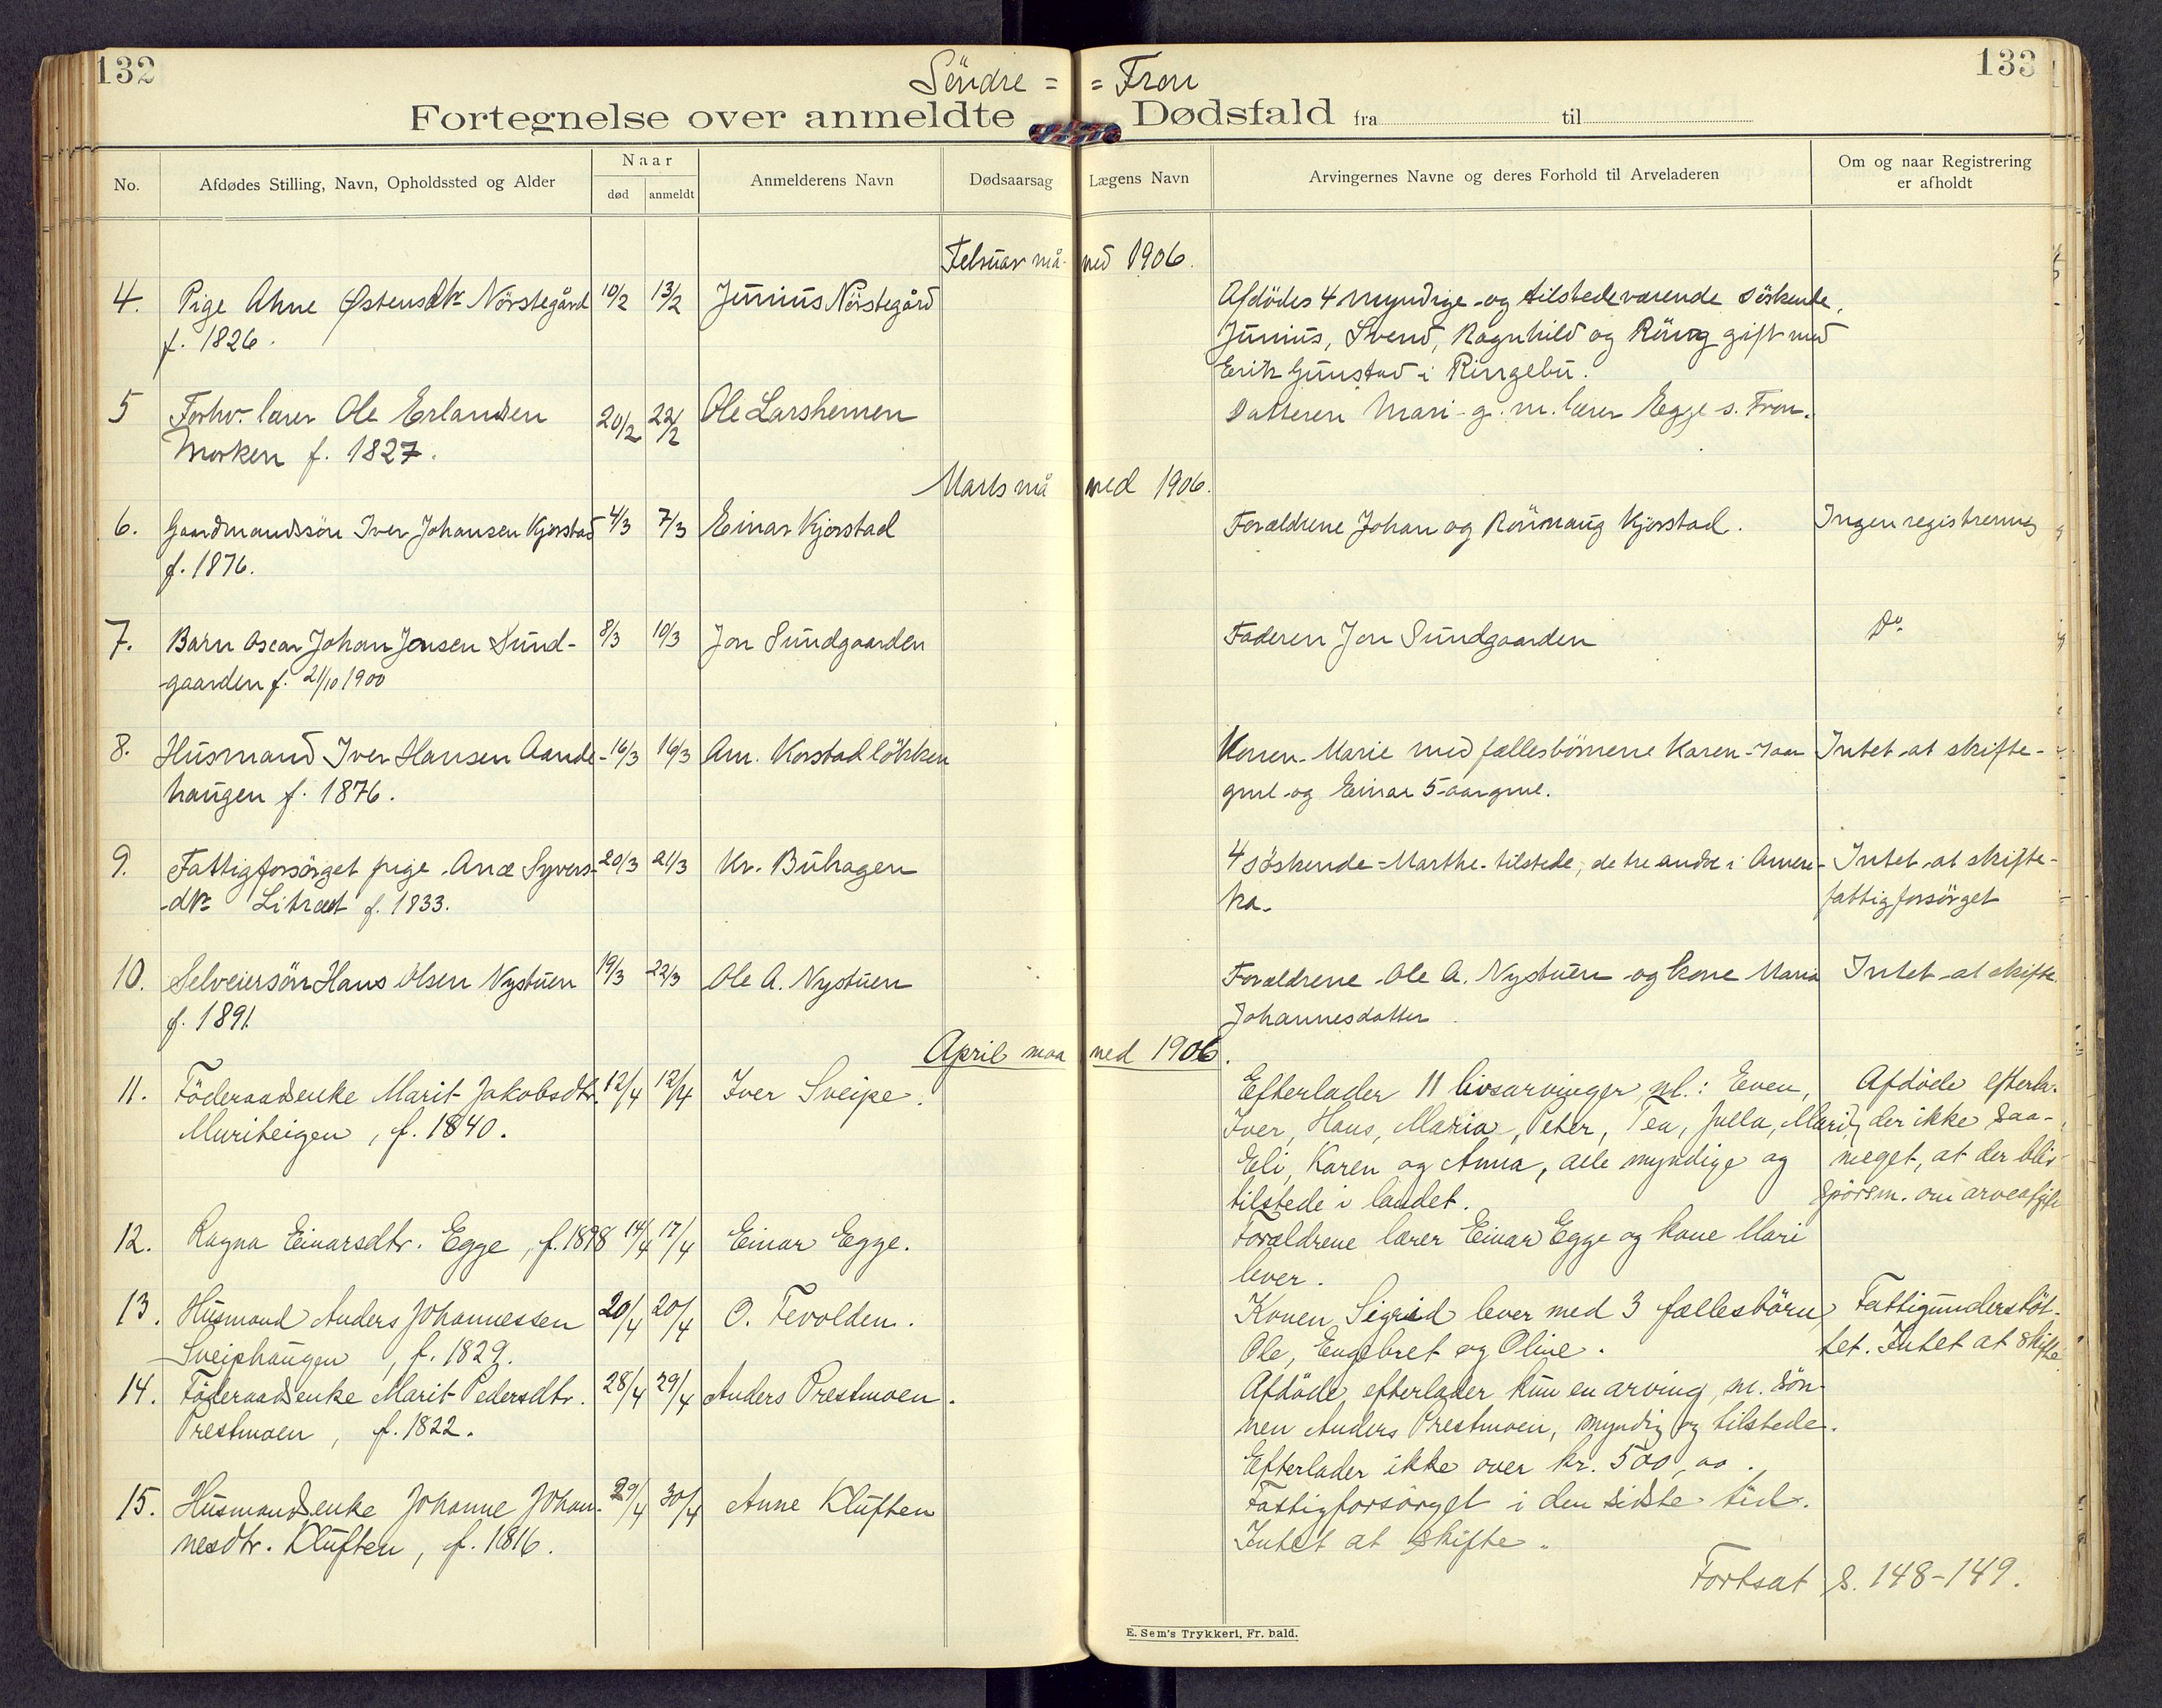 132
133
Söndre = = Fron
Fortegnelse over anmeldte Dødsfald fra til
No.
Afdødes Stilling, Navn, Opholdssted og Alder
Naar
død anmeldt
Anmelderens Navn
Dødsaarsag
Lægens Navn
Arvingernes Navne og deres Forhold til Arveladeren
Om og naar Registrering
er afholdt
Februar må- ned 1906.
4. Pige Ahne Østensdtr Nörstegård 10/2 13/2 Junius Nörstegård Afdödes 4 myndige og tilstedeværende söskende,
f. 1826. Junius, Svend, Ragnhild og gift med
Erik Gunstad i Ringebu.
5 Forhv. lærer Ole Erlandsen 20/2 22/2 Ole Larshemen Datteren Mari g. m. lærer Egge s. Fron.
Morken f. 1827.
Marts må ned 1906.
6. Gaardmandssön Iver Johansen Kjorstad 4/3 7/3 Einar Kjorstad Forældrene Johan og Rönnaug Kjorstad. Ingen registrering
f. 1876.
7. Barn Oscar Johan Jensen Sund- 8/3 10/3 Jon Sundgaarden Faderen Jon Sundgaarden Do.
gaarden f. 21/10 1900
8. Husmand Iver Hansen Aande- 16/3 16/3 Am. Korstadlökken Konen Marie med fællesbörnene Karen 7 aar Intet at skifte-
haugen f. 1876. gml og Einar 5 aar gml.
9. Fattigforsörget pige Ane Syvers- 20/3 21/3 Kr. Buhagen 4 söskende - Marthe tilstede, de tre andre i Ameri- Intet at skifte-
dtr f. 1833. ka. fattigforsörget
10. Selveiersön Hans Olsen Nystuen 19/3 22/3 Ole A. Nystuen Forældrene Ole A. Nystuen og kone Maria Intet at skifte
f. 1891. Johannesdatter
April maa ned 1906.
11. Föderaadsenke Marit Jakobsdtr. 12/4 12/4 Iver Sveipe. Efterlader 11 livsarvinger nl.: Even, Afdöde efterla-
Muriteigen, f. 1840. Iver, Hans, Maria, Peter, Tea, Julla, Mari, der ikke saa-
Eli, Karen og Anna, alle myndige og meget, at der bliv
tilstede i landet. spörsm. om arveafgift
12. Ragna Einarsdtr. Egge, f. 1898 14/4 17/4 Einar Egge. Forældrene lærer Einar Egge og kone Mari
lever.
13. Husmand Anders Johannessen 20/4 20/4 O. Tevolden. Konen Sigrid lever med 3 fællesbörn, Fattigunderstöt-
Sveiphaugen, f. 1829. Ole, Engebret og Oline. tet. Intet at skifte.
14. Föderaadsenke Marit Pedersdtr. 28/4 29/4 Anders Prestmoen. Afdöde efterlader kun en arving, nl. sön-
Prestmoen, f. 1822. nen Anders Prestmoen, myndig og tilstede.
Efterlader ikke over kr. 500,00.
15. Husmandsenke Johanne Johan- 29/4 30/4 Anne Kluften Fattigforsörget i den sidste tid.
nesdtr. Kluften, f. 1816. Intet at skifte.
Fortsat s. 148-149.
E. Sem's Trykkeri, Fr. hald.